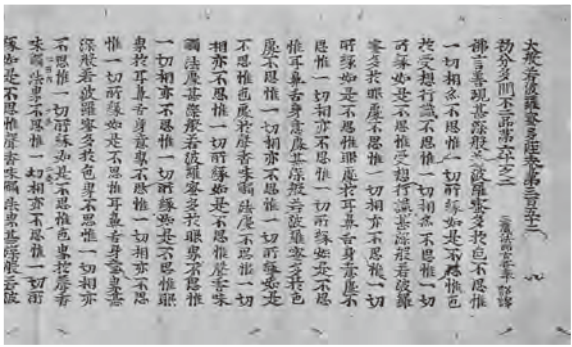 大般若波羅蜜多經卷第三百五十二
初分多問不二品第六十一之二 三藏法師玄奘奉 詔譯
佛言善現甚深般若波羅蜜多於色不思惟
一切相亦不思惟一切所緣如是不思惟色
於受想行識不思惟一切相亦不思惟一切
所緣如是不思惟受想行識甚深般若波羅
蜜多於眼處不思惟一切相亦不思惟一切
所緣如是不思惟眼處於耳鼻舌身意處不
思惟一切相亦不思惟一切所緣如是不思
惟耳鼻舌身意處甚深般若波羅蜜多於色
處不思惟一切相亦不思惟一切所緣如是
不思惟色處於聲香味觸法處不思惟一切
相亦不思惟一切所緣如是不思惟聲香味
觸法處甚深般若波羅蜜多於眼界不思惟
一切相亦不思惟一切所緣如是不思惟眼
界於耳鼻舌身意界不思惟一切相亦不思
惟一切所緣如是不思惟耳鼻舌身意界甚
深般若波羅蜜多於色界不思惟一切相亦
不思惟一切所緣如是不思惟色界於聲香
味觸法界不思惟一切相亦不思惟一切所
緣如是不思惟聲香味觸法界甚深般若波